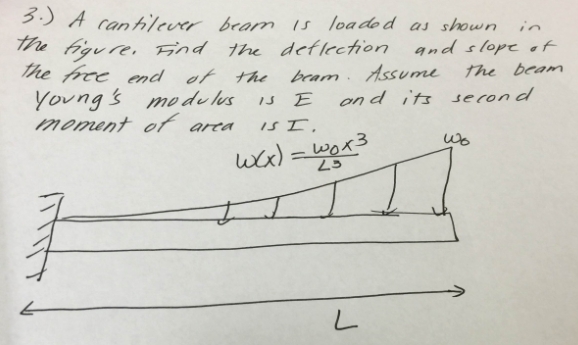 3.) A cantilever beam is loaded as shown in
the figure. Find the deflection and slope of
the free end of the beam. Assume the beam
Young's modulus is E and its second
moment of area is I.
w(x) = w₀x³/L³
w₀
L